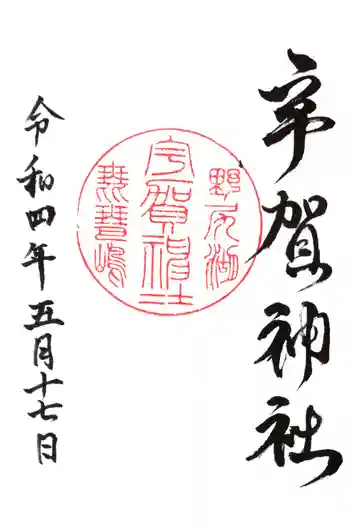 宇賀神社
野尻湖
宇賀神社
琵琶嶋
令和四年五月十七日